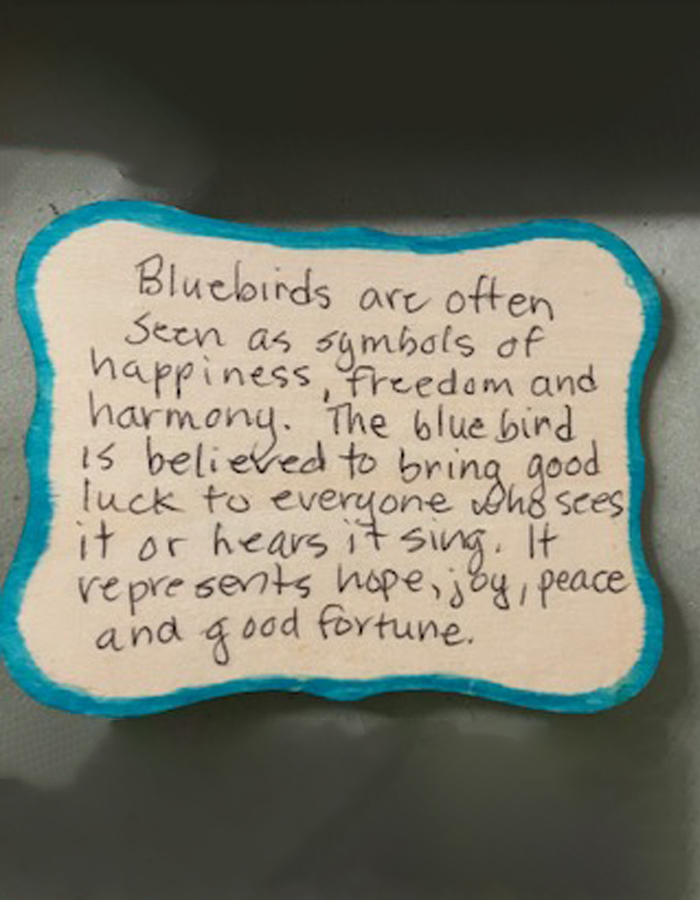 Bluebirds are often
seen as symbols of
happiness, freedom and
harmony. The blue bird
is believed to bring good
luck to everyone who sees
it or hears it sing. It
represents hope, joy, peace
and good fortune.